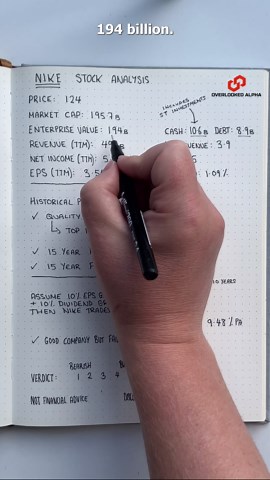 194 billion.
NIKE STOCK ANALYSIS
OVERLOOKED ALPHA
PRICE: 124
INCLUDES ST INVESTMENTS
MARKET CAP: 195.7B
ENTERPRISE VALUE: 194B
CASH: 10.6B DEBT: 8.9B
REVENUE (TTM): 49
3.9
NET INCOME (TTM): 5
EPS (TTM): 3.5
1.09%
HISTORICAL
✓ QUALITY
↳ TOP
✓ 15 YEAR
✓ 15 YEAR
10 YEARS
ASSUME 10% EPS
+ 10% DIVIDEND
THEN NIKE TRADES
9.48% PA
✓ GOOD COMPANY BUT
BEARISH
VERDICT: 1 2 3 4
NOT FINANCIAL ADVICE